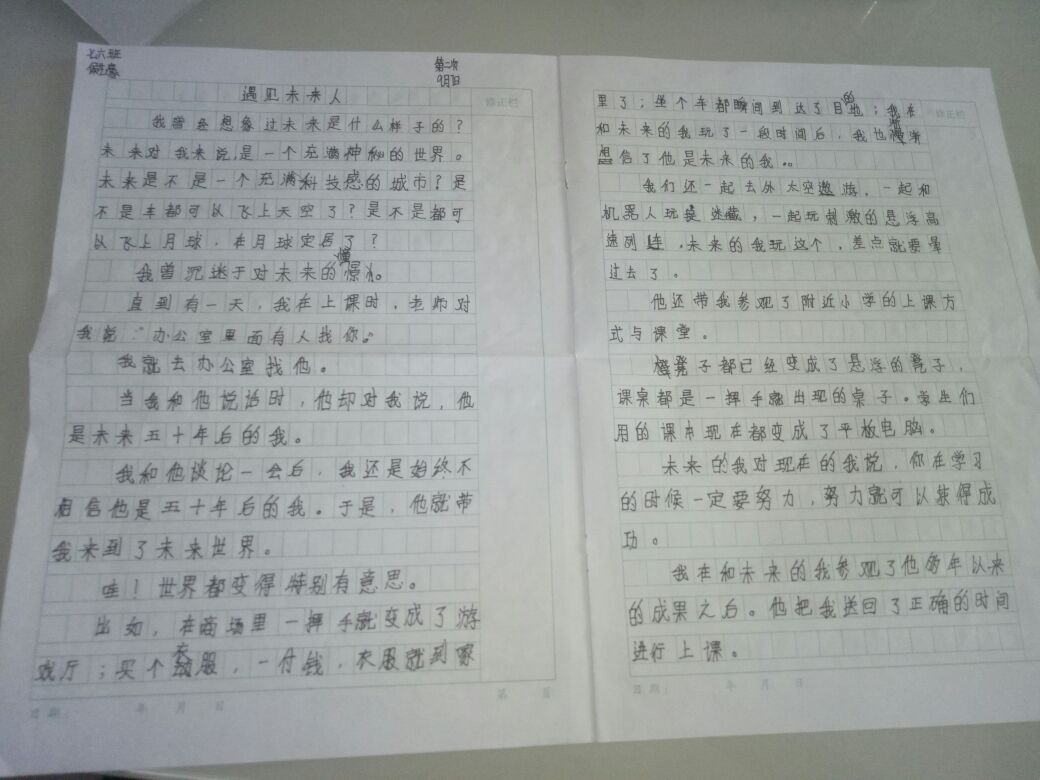 七六班
第二次
9月1日
遇见未来人
修正栏
我曾经想象过未来是什么样子的？
未来对我来说，是一个充满神秘的世界。
未来是不是一个充满科技感的城市？是
不是车都可以飞上天空了？是不是都可
以飞上月球，在月球定居了？
我曾沉迷于对未来的憧憬。
直到有一天，我在上课时，老师对
我说：“办公室里面有人找你。”
我就去办公室找他。
当我和他说话时，他却对我说，他
是未来五十年后的我。
我和他谈论一会后，我还是始终不
相信他是五十年后的我。于是，他就带
我来到了未来世界。
哇！世界都变得特别有意思。
比如，在商场里一挥手就变成了游
戏厅；买个衣服，一付钱，衣服就到家
日期： 年 月 日
第 页
里了；坐个车都瞬间到达了目的地；我在
修正栏
和未来的我玩了一段时间后，我也渐渐
相信了他是未来的我。
我们还一起去外太空遨游，一起和
机器人玩捉迷藏，一起玩刺激的悬浮高
速列车，未来的我玩这个，差点就要晕
过去了。
他还带我参观了附近小学的上课方
式与课堂。
凳子都已经变成了悬浮的凳子，
课桌都是一挥手就出现的桌子。学生们
用的课本现在都变成了平板电脑。
未来的我对现在的我说，你在学习
的时候一定要努力，努力就可以获得成
功。
我在和未来的我参观了他多年以来
的成果之后。他把我送回了正确的时间
进行上课。
日期： 年 月 日